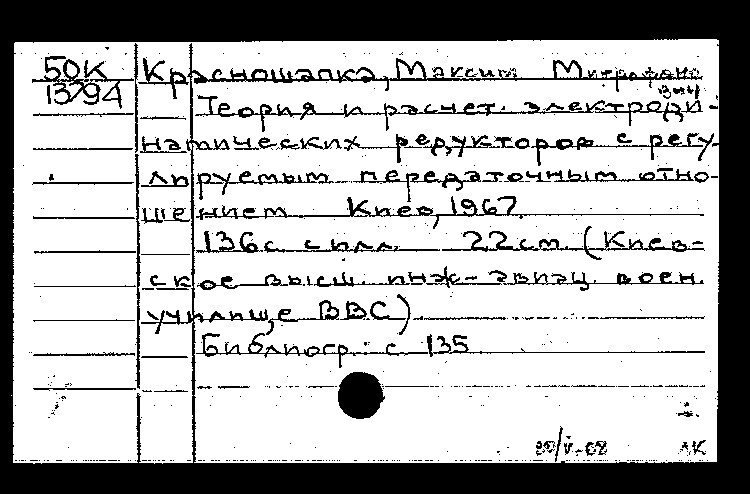 50К Красношапка, Максим Митрофано
13794 вич
Теория и расчет. электроди-
намических редукторов с регу-
лируемым передаточным отно-
шением Киев, 1967.
136с с илл. 22см (Киев-
ское высш. инж-авиац. воен.
училище ВВС)
Библиогр: с 135
ЛК